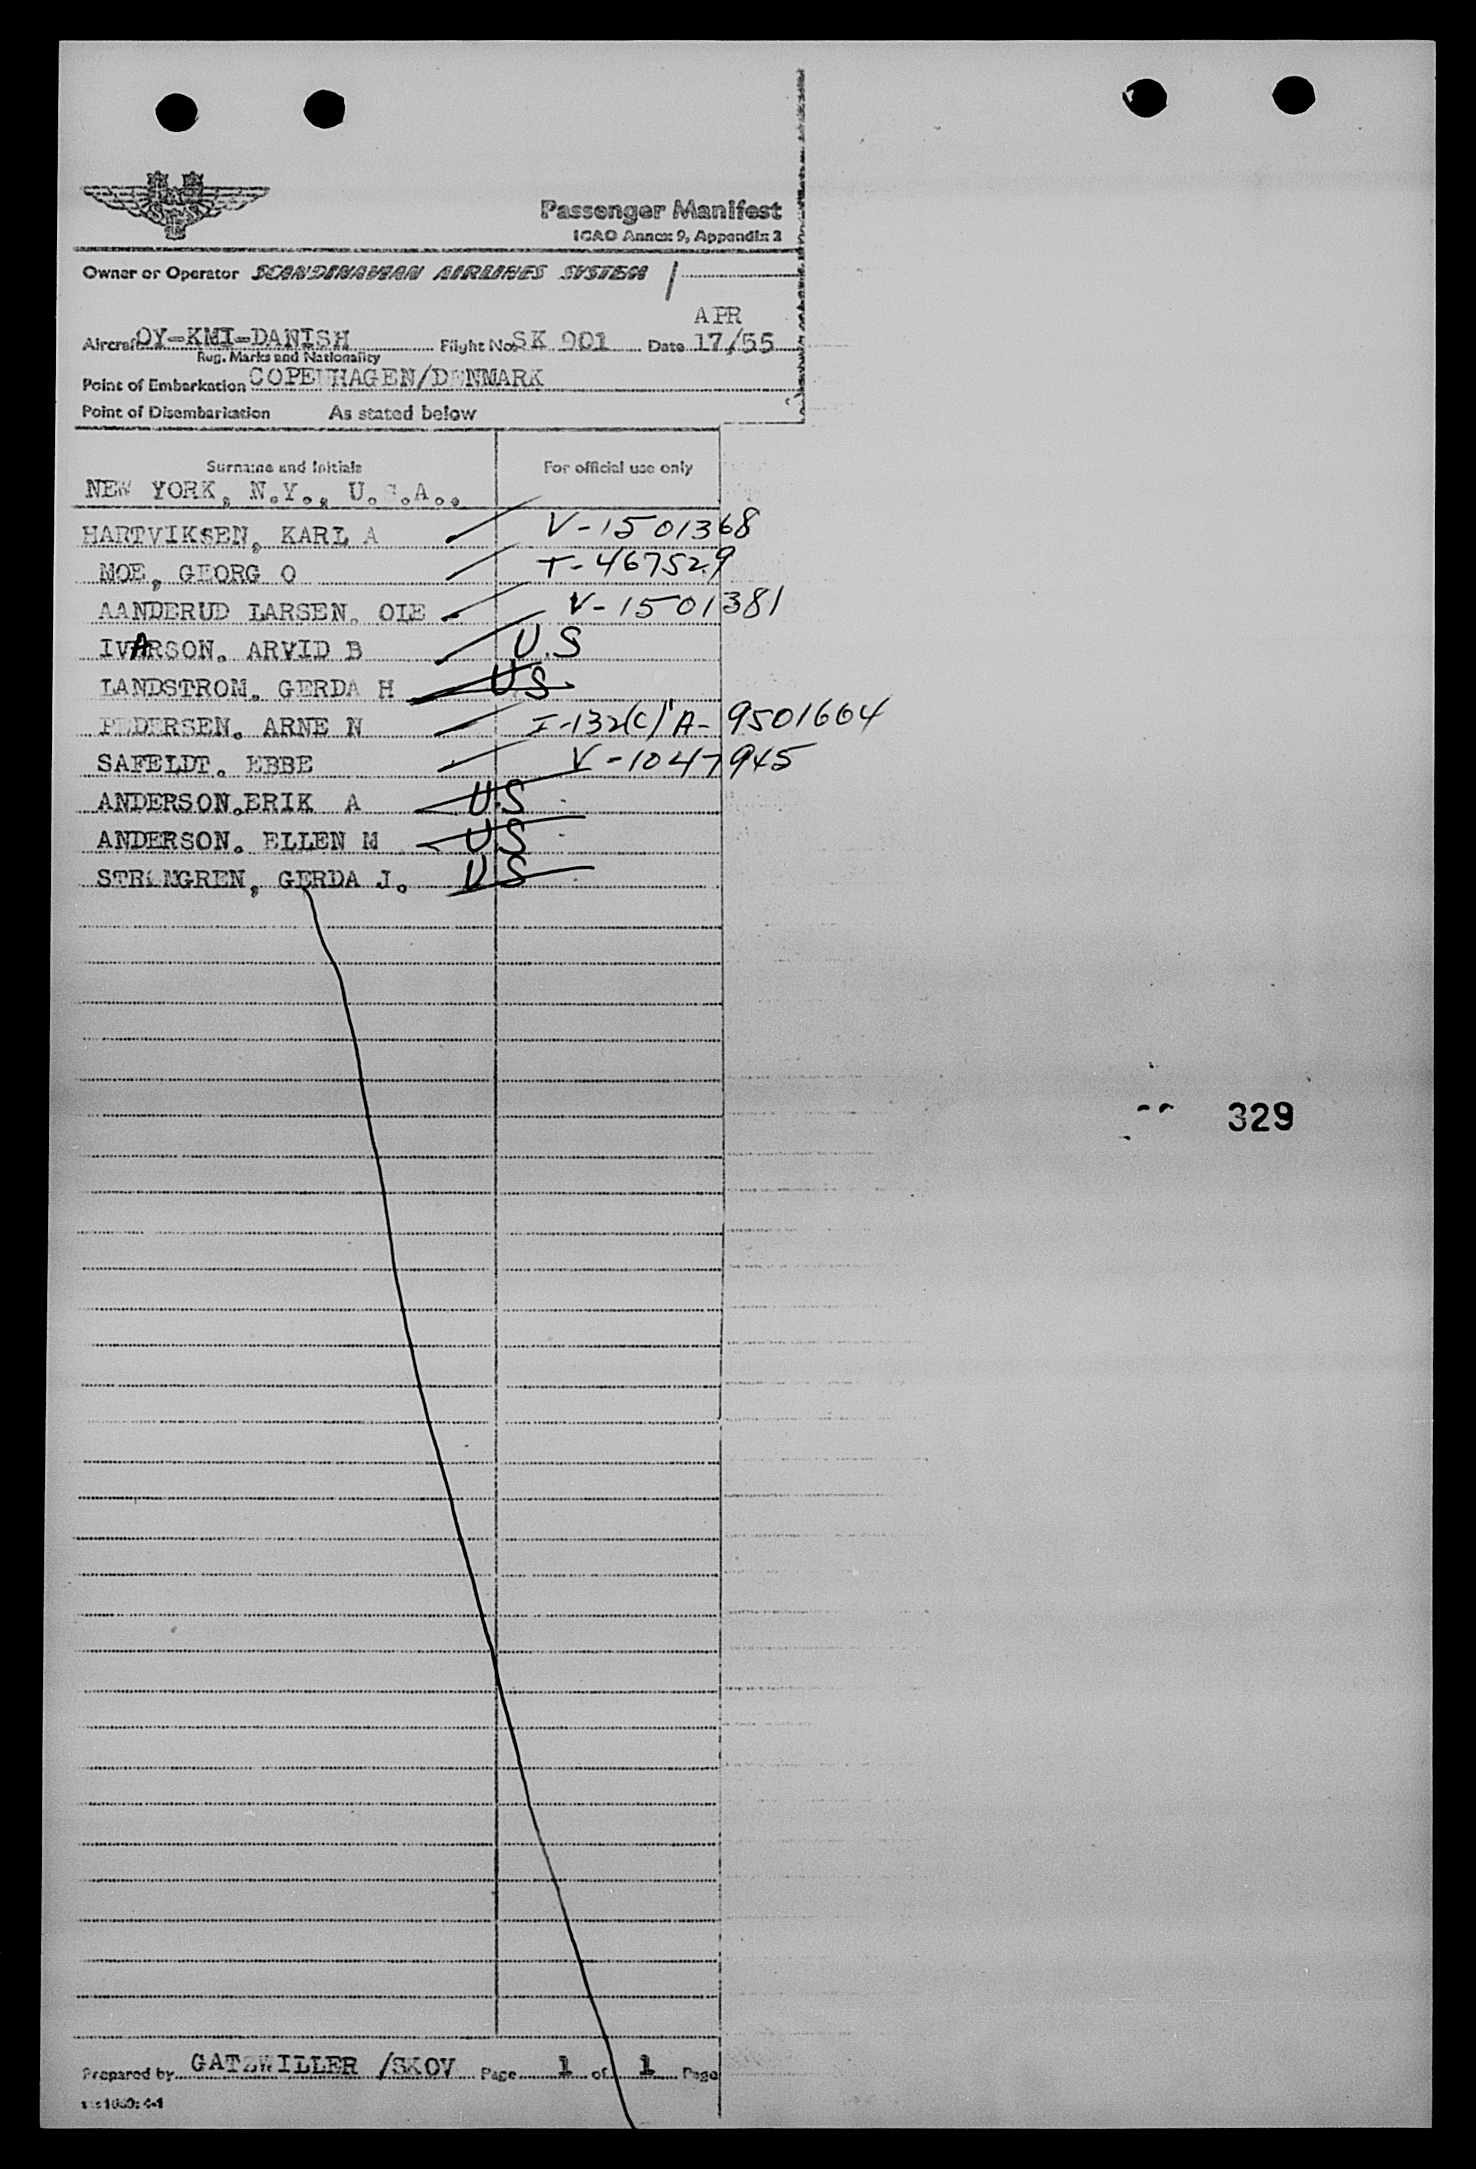 SAS
Passenger Manifest
ICAO Annex 9, Appendix 2
Owner or Operator SCANDINAVIAN AIRLINES SYSTEM /
APR
Aircraft OY-KMI-DANISH Flight No. SK 901 Date 17/55
Reg. Marks and Nationality
Point of Embarkation COPENHAGEN/DENMARK
Point of Disembarkation As stated below
Surname and Initials For official use only
NEW YORK, N.Y., U.S.A.,
HARTVIKSEN, KARL A V-1501368
MOE, GEORG O T-467529
AANDERUD LARSEN. OLE V-1501381
IVARSON. ARVID B U.S
LANDSTROM. GERDA H US.
PEDERSEN. ARNE N I-132(C) A-9501664
SAFELDT. EBBE V-1047945
ANDERSON.ERIK A U.S
ANDERSON. ELLEN M US
GERDA J. US
329
Prepared by GATZWILLER /SKOV Page 1 of 1 Page